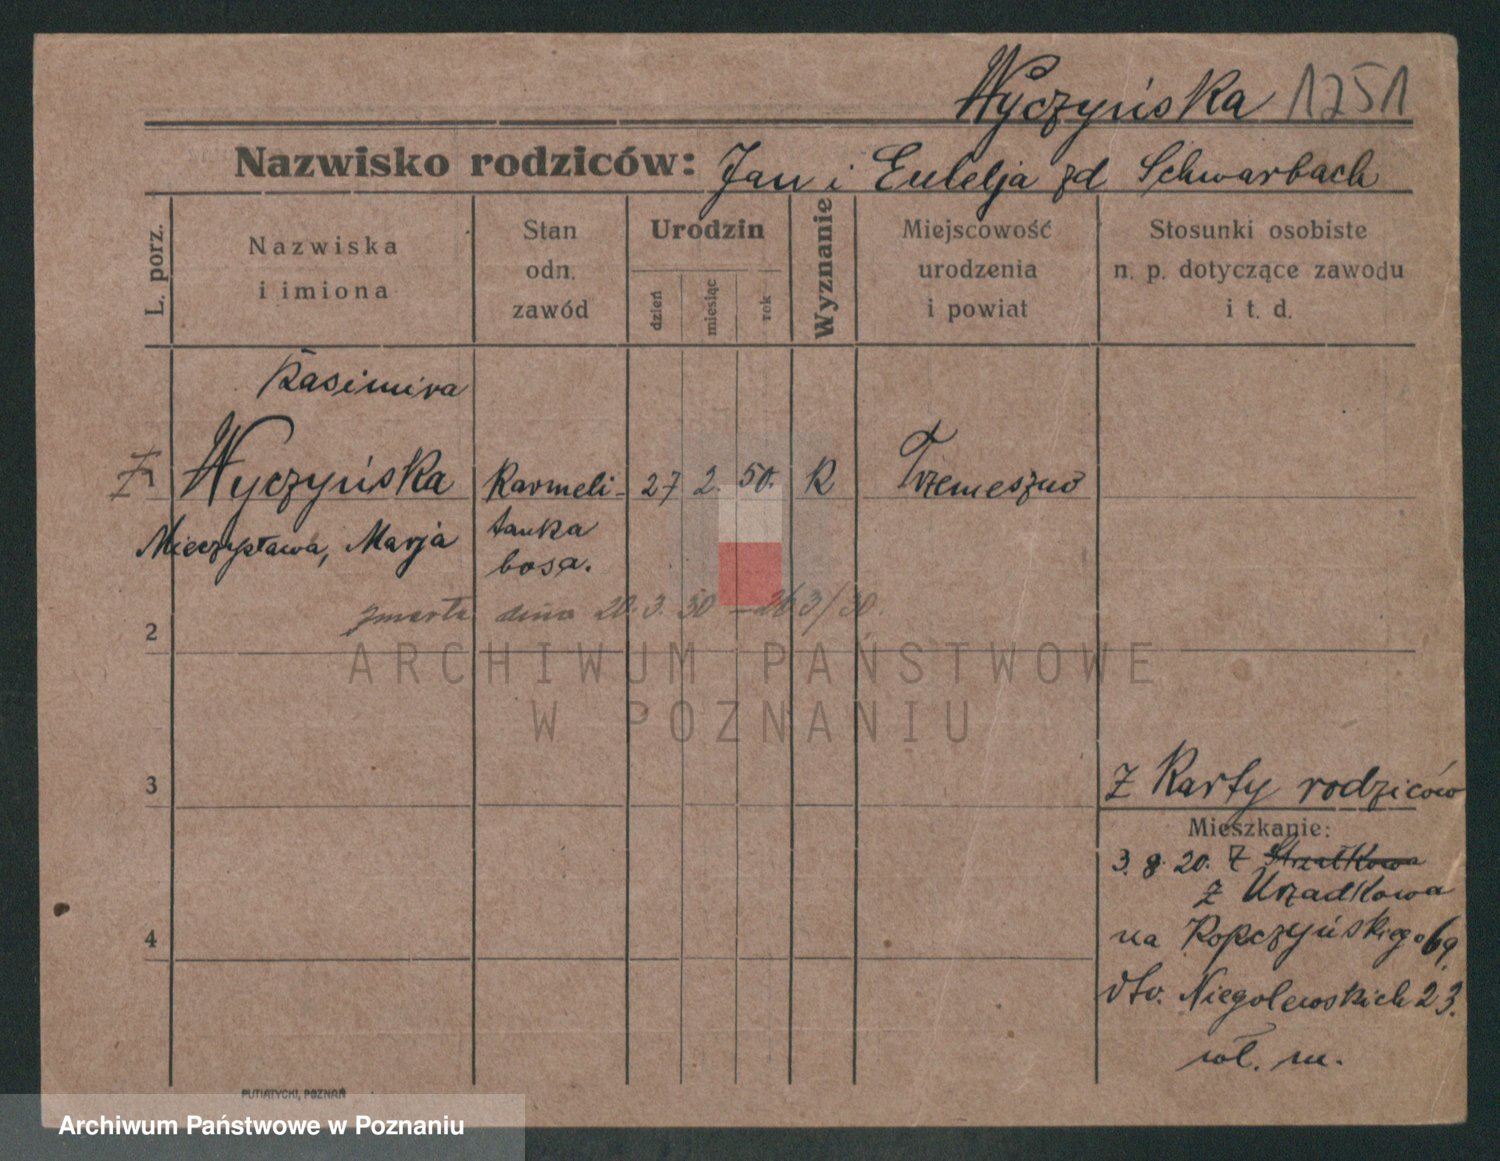 Wyczyńska 1251
Nazwisko rodziców: Jan i Eulelja zd Schwarbach
L. porz.
Nazwiska
i imiona
Stan
odn.
zawód
Urodzin
dzień
miesiąc
rok
Wyznanie
Miejscowość
urodzenia
i powiat
Stosunki osobiste
n. p. dotyczące zawodu
i t. d.
Kasimira
Wyczyńska Karmeli- 27 2. 50. R Trzemeszno
Mieczysława, Marja tanka
bosa.
zmarła dnia 20.3.30 — 26 3/30
2
3
4
z Karty rodziców
Mieszkanie:
3. 8. 20. z Strzałkowa
z Urzadkowa
na Kopczyńskiego 69.
dto. Niegolewskich 23.
wł. m.
PUTIATYCKI, POZNAŃ
ARCHIWUM PAŃSTWOWE
W POZNANIU
Archiwum Państwowe w Poznaniu